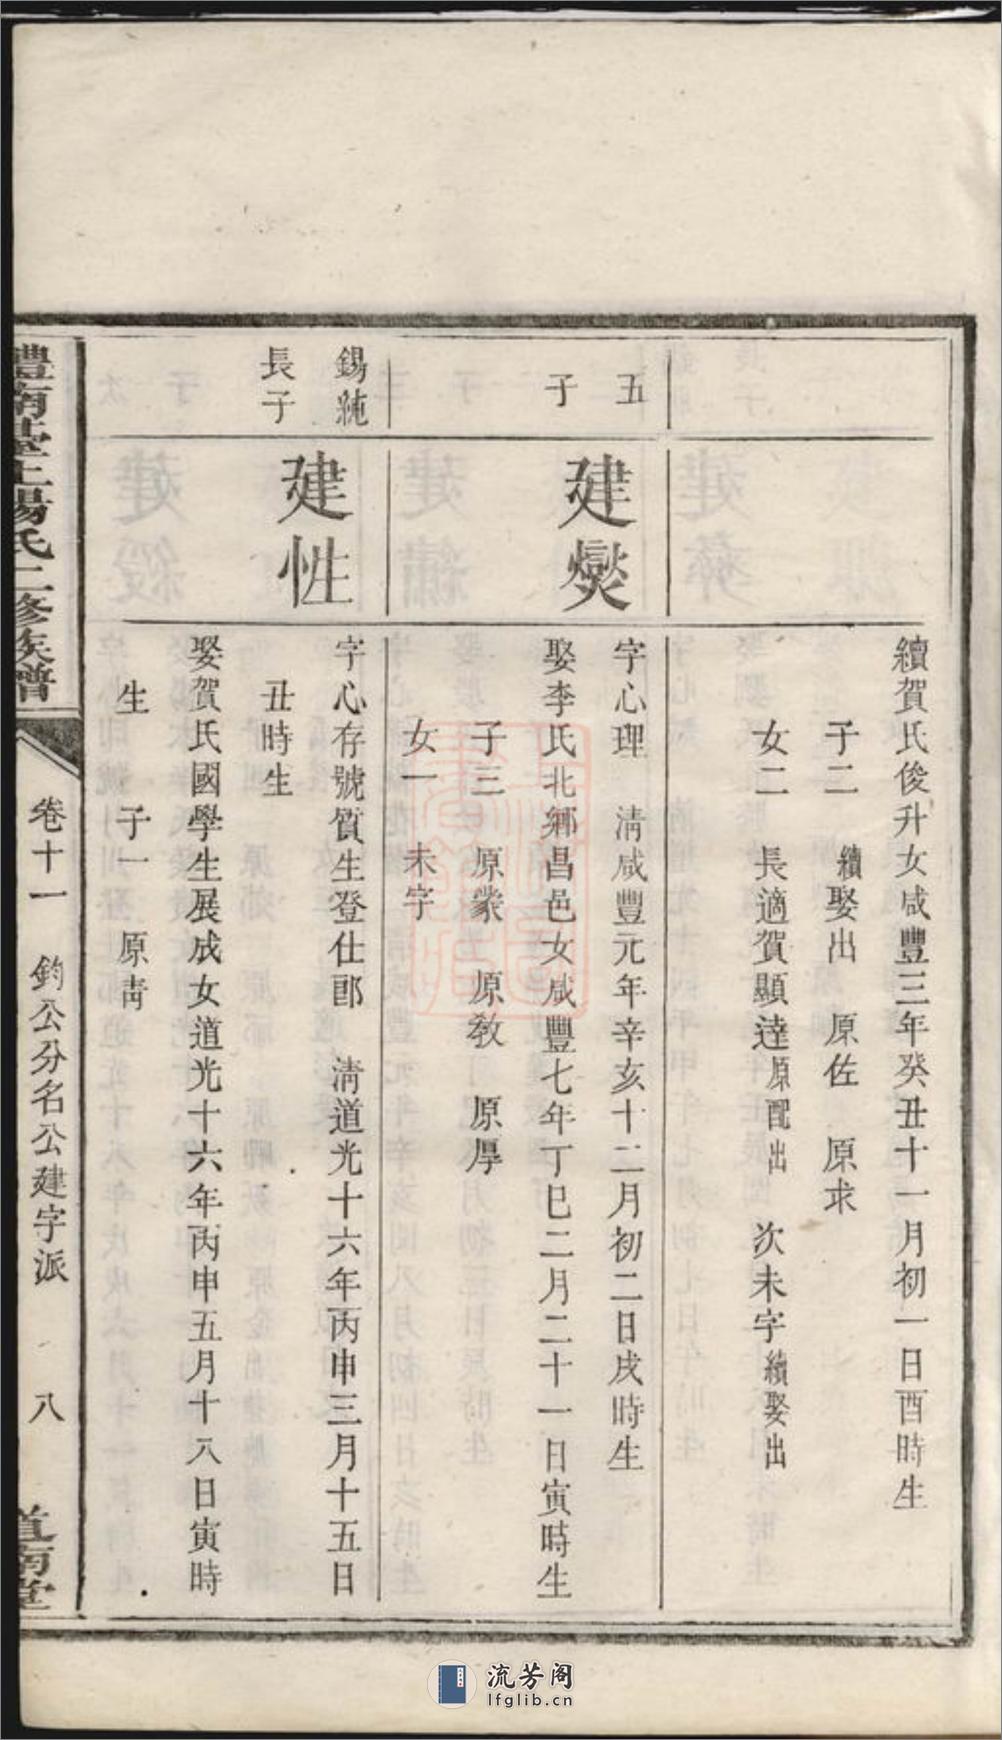 續賀氏俊升女咸豐三年癸丑十一月初一日酉時生
子二 續娶出 原佐 原求
女二 長適賀顯達原配出 次未字續娶出
五
子
建燮
字心理 清咸豐元年辛亥十二月初二日戌時生
娶李氏北鄉昌邑女咸豐七年丁巳二月二十一日寅時生
子三 原蒙 原敎 原厚
女一 未字
錫純
長子
建性
字心存號質生登仕郎 清道光十六年丙申三月十五日
丑時生
娶賀氏國學生展成女道光十六年丙申五月十八日寅時
生 子一 原靑
卷十一 鈞公分名公建字派 八
道南堂
流芳阁
lfglib.cn